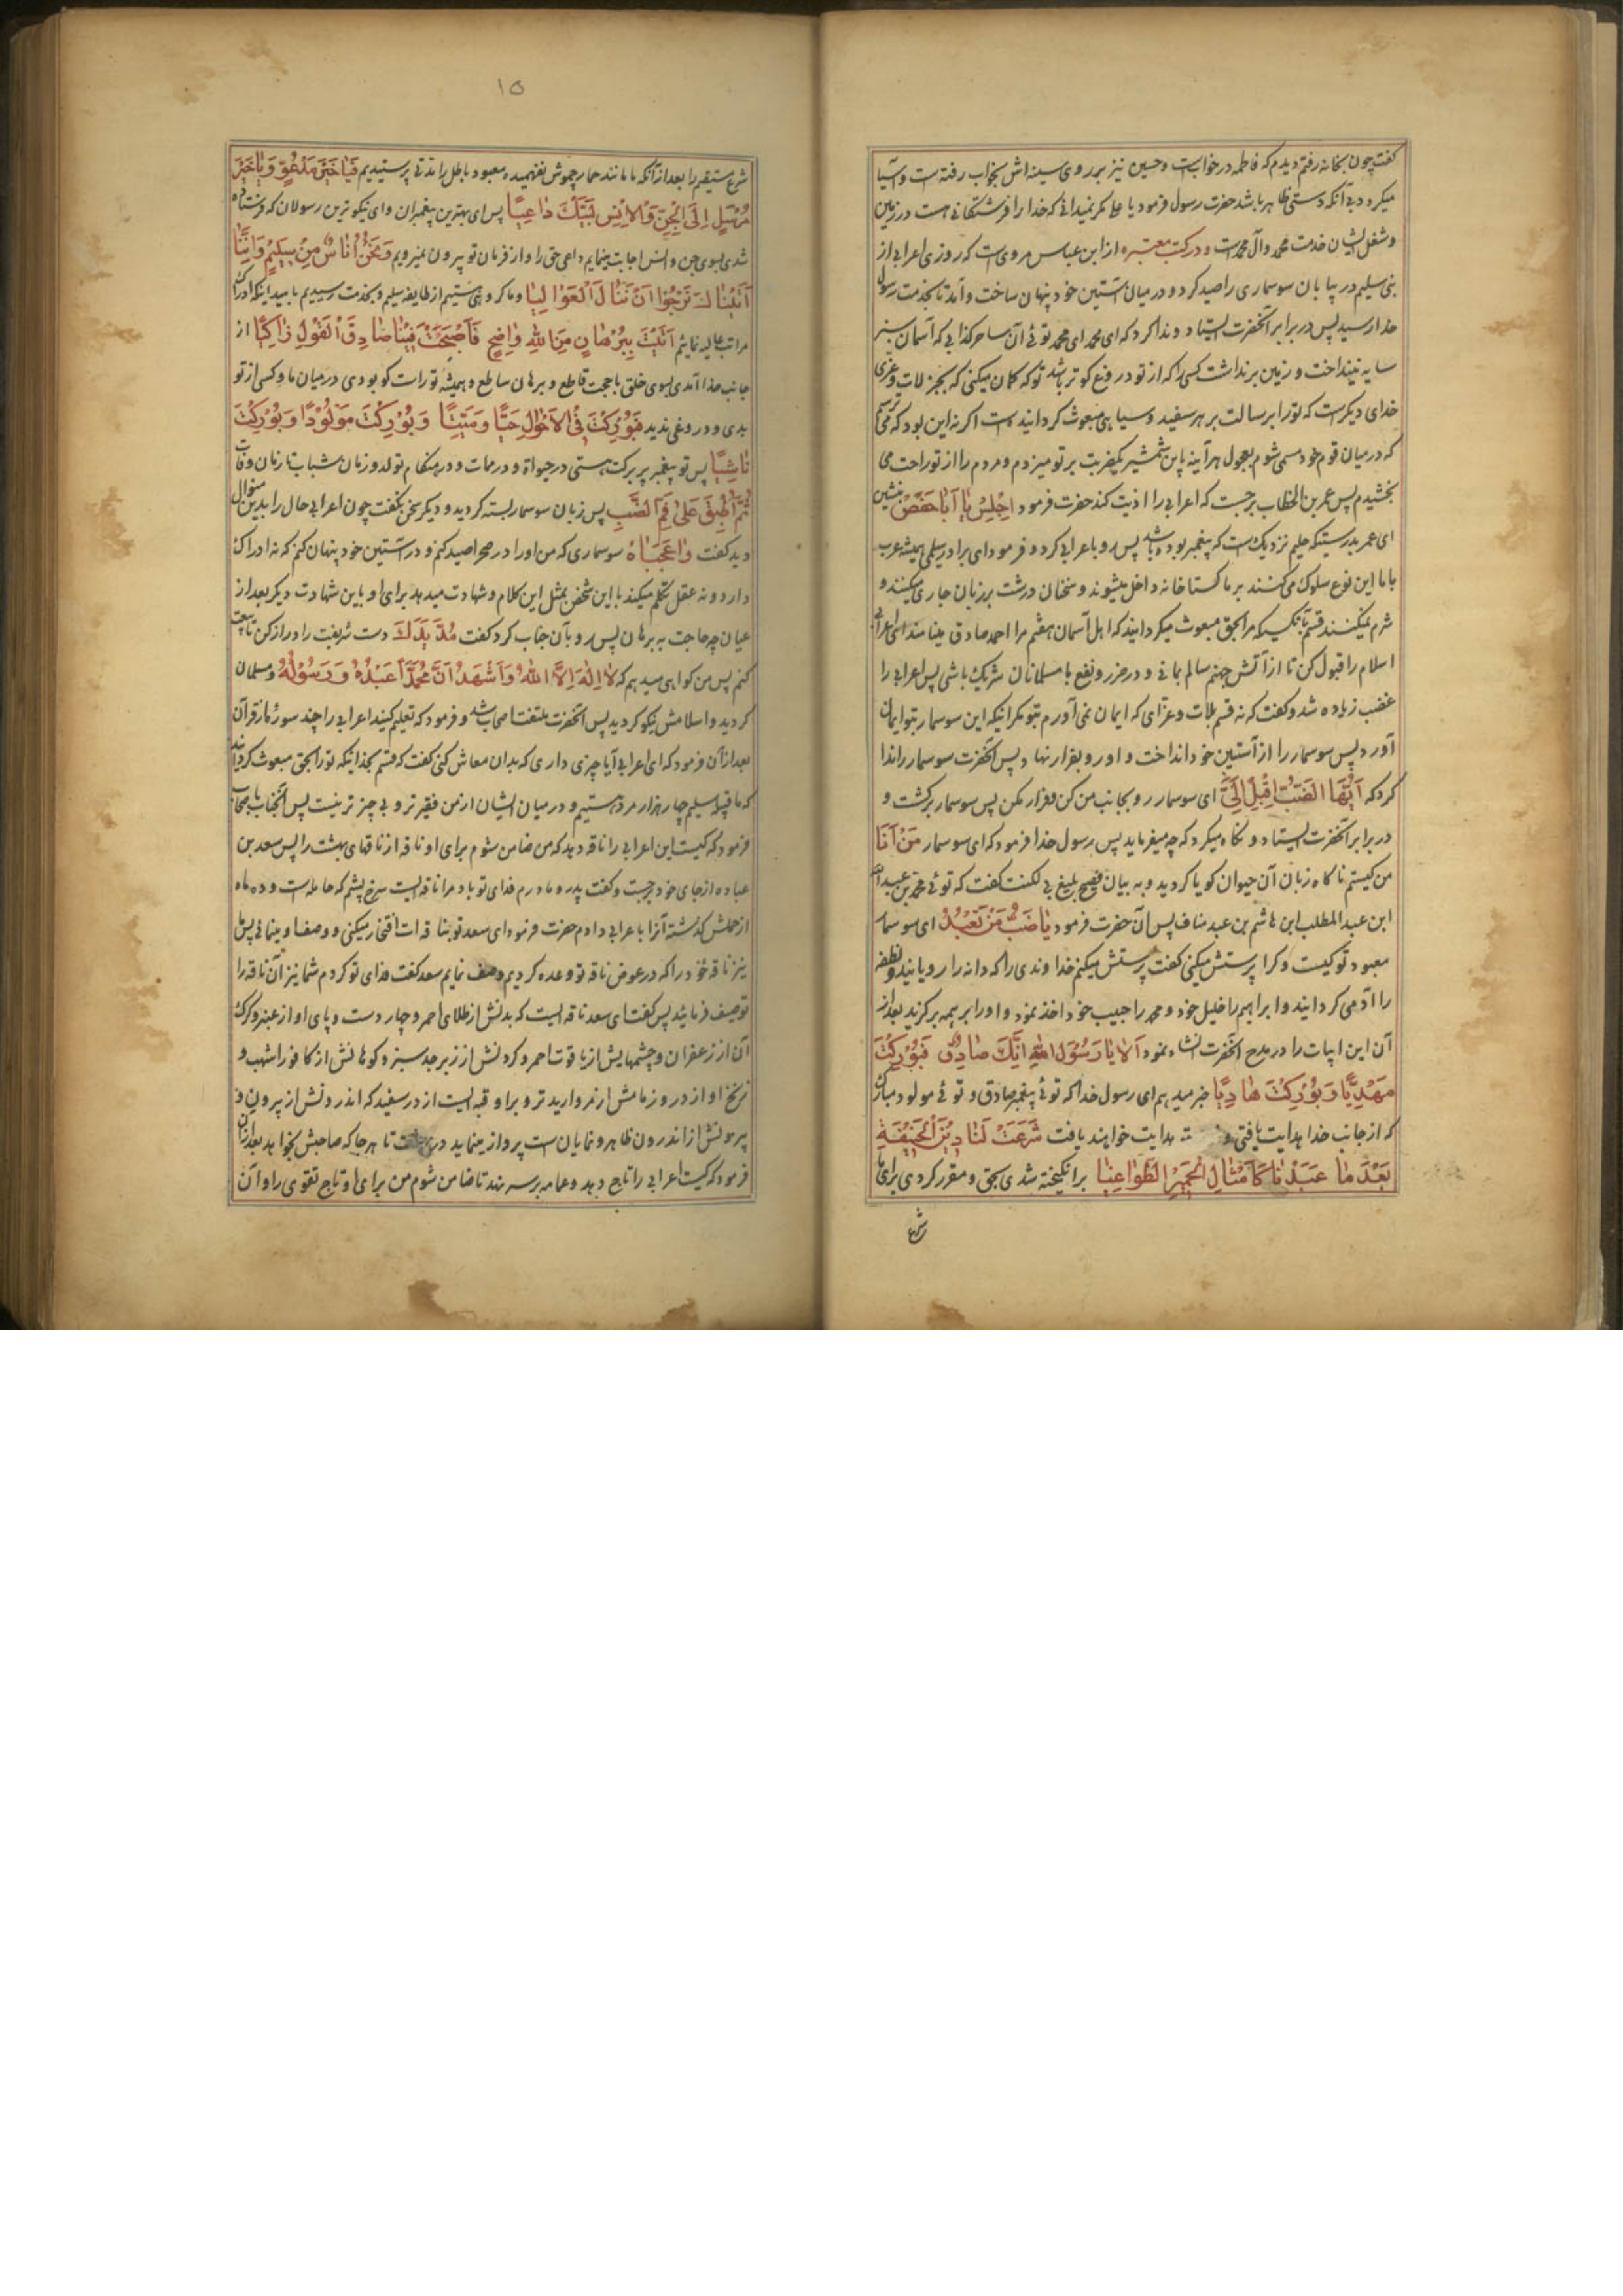 گفت چون بخانه رفتم دیدم که فاطمه در خوابست و حسین نیز بر روی سینه اش بخواب رفته است و آسیا
میکردد بی آنکه دستی ظاهر باشد حضرت رسول فرمود یا علی مکر نمیدانی که خدا را فرشتکانی هست در زمین
و شغل ایشان خدمت محمد و آل محمد است و در کتب معتبره از ابن عباس مرویست که روزی اعرابی از
بنی سلیم در بیابان سوسماری را صید کرد و در میان آستین خود پنهان ساخت و آمد تا بخدمت رسول
خدا رسید پس در برابر آنحضرت ایستاد و ندا کرد که ای محمد ای محمد توئی آن ساحر کذابی که آسمان سبز
سایه نینداخت و زمین برنداشت کسی را که از تو دروغ کوتر باشد توکه کمان میکنی که بجز لات و عزی
خدای دیکر است که تو را برسالت بر هر سفید و سیاهی مبعوث کردانیده است اکر نه این بود که می ترسم
که در میان قوم خود مسمی شوم بعجول هر آینه باین شمشیر یکضربت بر تو میزدم و مردم را از تو راحت می
بخشیدم پس عمر بن الخطاب برجست که اعرابی را اذیت کند حضرت فرمود اِجْلِسْ یٰا اَبٰا حَفَصْ بنشین
ای عمر بدرستیکه حلیم نزدیک است که پیغمبر بوده باشد پس رو باعرابی کرد و فرمود ای برادر سلیمی همیشه عرب
با ما این نوع سلوک می کنند بر ما کستاخانه داخل میشوند و سخنان درشت بر زبان جاری میکنند و
شرم نمیکنند قسم بآنکسیکه مرا بحق مبعوث میکردانید که اهل آسمان هفتم مرا احمد صادق مینامند ای اعرابی
اسلام را قبول کن تا از آتش جهنم سالم بمانی و در ضرر و نفع با مسلمانان شریک باشی پس اعرابی را
غضب زیاده شد و کفت که نه قسم بلات و عزای که ایمان نمی آورم بتو مکر انیکه این سوسمار بتو ایمان
آورد پس سوسمار را از آستین خود انداخت و او رو بفرار نهاد پس آنحضرت سوسمار را ندا
کرد که اَیُّهَا الضَّبُّ اِقْبِلْ اِلَیَّ ای سوسمار رو بجانب من کن و فرار مکن پس سوسمار برکشت و
در برابر آنحضرت ایستاد و نکاه میکرد که چه میفرماید پس رسول خدا فرمود که ای سوسمار مَنْ اَنَا
من کیستم ناکاه زبان آن حیوان کویا کردید و به بیان فصیح بلیغ بی لکنت کفت که توئی محمد بن عبد الله
ابن عبد المطلب ابن هاشم بن عبد مناف پس آن حضرت فرمود یٰا ضَبُّ مَنْ تَعْبُدُ ای سوسمار
معبود تو کیست و کرا پرستش میکنی کفت پرستش میکنم خداوندی را که دانه را رویانید و نطفه
را آدمی کردانید و ابراهیم را خلیل خود و محمد را حبیب خود اخذ نمود و او را بر همه برکزید بعد از
آن این ابیات را در مدح آنحضرت انشاد نمود اَلاٰ یٰا رَسُوْلَ اللهِ اِنَّكَ صٰادِقٌ فَبُوْرِكْتَ
مَهْدِیًّا وَ بُوْرِكْتَ هٰادِیًا خبر میدهم ای رسول خدا که توئی پیغمبر صادق و توئی مولود مبارک
که از جانب خدا هدایت یافتی و هدایت خواهند یافت شَرَعْتَ لَنٰا دِیْنَ الْحَنِیْفَةِ
بَعْدَ مٰا عَبَدْنٰا كَاَمْثٰالِ الْحَمِیْرِ الطَّوٰاغِیٰا برانکیخته شدی بحق و مقرر کردی برای ما
شرع
١٥
شرع مستقیم را بعد از آنکه ما مانند حمار چموش نفهمیده معبود باطل را مدتی پرستیدیم فَیٰا خَیْرَ مَدْعُوٍّ وَ یٰا خَیْرَ
مُرْسَلٍ اِلَی الْجِنِّ وَ الْاِنْسِ لَبَّیْكَ دٰاعِیًا پس ای بهترین پیغمبران و ای نیکوترین رسولان که فرستاده
شدی بسوی جن و انس اجابت مینمایم داعی حق را و از فرمان تو بیرون نمیرویم وَ نَحْنُ اُنٰاسٌ مِنْ سُلَیْمٍ وَ اِنَّنٰا
اَتَیْنٰاكَ نَرْجُوْا اَنْ نَنٰالَ الْعَوٰالِیٰا و ما کروهی هستیم از طایفه سلیم و بخدمت رسیدیم بامید اینکه ادراک
مراتب عالیه نمائیم اَتَیْتَ بِبُرْهٰانٍ مِنَ اللهِ وٰاضِحٍ فَاَصْبَحْتَ فِیْنٰا صٰادِقَ الْقَوْلِ زٰاكِیًا از
جانب خدا آمدی بسوی خلق باحجت قاطع و برهان ساطع و همیشه تو راست کو بودی در میان ما و کسی از تو
بدی و دروغی ندید فَبُوْرِكْتَ فِی الْاَحْوٰالِ حَیًّا وَ مَیِّتًا وَ بُوْرِكْتَ مَوْلُوْدًا وَ بُوْرِكْتَ
نٰاشِیًا پس تو پیغمبر پر برکت هستی در حیواة و در ممات و در هنکام تولد و زمان شباب تا زمان وفات
ثُمَّ اُطْبِقَ عَلیٰ فَمِ الضَّبِّ پس زبان سوسمار بسته کردید و دیکر سخن نکفت چون اعرابی حال را بدین منوال
دید کفت وٰاعَجَبٰاهُ سوسماری که من او را در صحرا صید کنم و در آستین خود پنهان کنم که نه ادراک
دارد و نه عقل تکلم میکند با این شخص بمثل این کلام و شهادت میدهد برای او باین شهادت دیکر بعد از
عیان چه حاجت به برهان پس رو بآن جناب کرد کفت مُدَّ یَدَكَ دست شریفت را دراز کن تا بیعت
کنم پس من کواهی میدهم که لاٰ اِلٰهَ اِلاَّ اللهُ وَ اَشْهَدُ اَنَّ مُحَمَّدًا عَبْدُهُ وَ رَسُوْلُهُ و مسلمان
کردید و اسلامش نیکو کردید پس آنحضرت ملتفت اصحاب شد و فرمود که تعلیم کنید اعرابی را چند سوره از قرآن
بعد از آن فرمود که ای اعرابی آیا چیزی داری که بدان معاش کنی کفت که قسم بخدائیکه تو را بحق مبعوث کردانید
که ما قبیله سلیم چهار هزار مرد هستیم و در میان ایشان از من فقیرتر و بی چیزتر نیست پس آنجناب باصحاب
فرمود که کیست این اعرابی را ناقه دهد که من ضامن شوم برای او ناقه از ناقهای بهشت را پس سعد بن
عباده از جای خود برجست و کفت پدر و مادرم فدای تو باد مرا ناقه ایست سرخ پشم که حامله است و ده ماه
از حملش کذشته آنرا باعرابی دادم حضرت فرمود ای سعد تو بناقه ات افتخار میکنی و وصف او مینمائی پس ما
نیز ناقه خود را که در عوض ناقه تو وعده کردیم وصف نمایم سعد کفت فدای تو کردم شما نیز آن ناقه را
توصیف فرمائید پس کفت ای سعد ناقه ایست که بدنش از طلای احمر و چهار دست و پای او از عنبر و کرک
آن از زعفران و چشمهایش از یاقوت احمر و کردنش از زبرجد سبز و کوهانش از کافور اشهب و
زنخ او از در و زمامش از مروارید تر و بر او قبه ایست از در سفید که اندرونش از بیرون و
بیرونش از اندرون ظاهر و نمایان است پرواز مینماید در بهشت تا هر جا که صاحبش بخواهد بعد از آن
فرمود که کیست اعرابی را تاج دهد و عمامه بر سر نهد تا ضامن شوم من برای او تاج تقوی را و آن